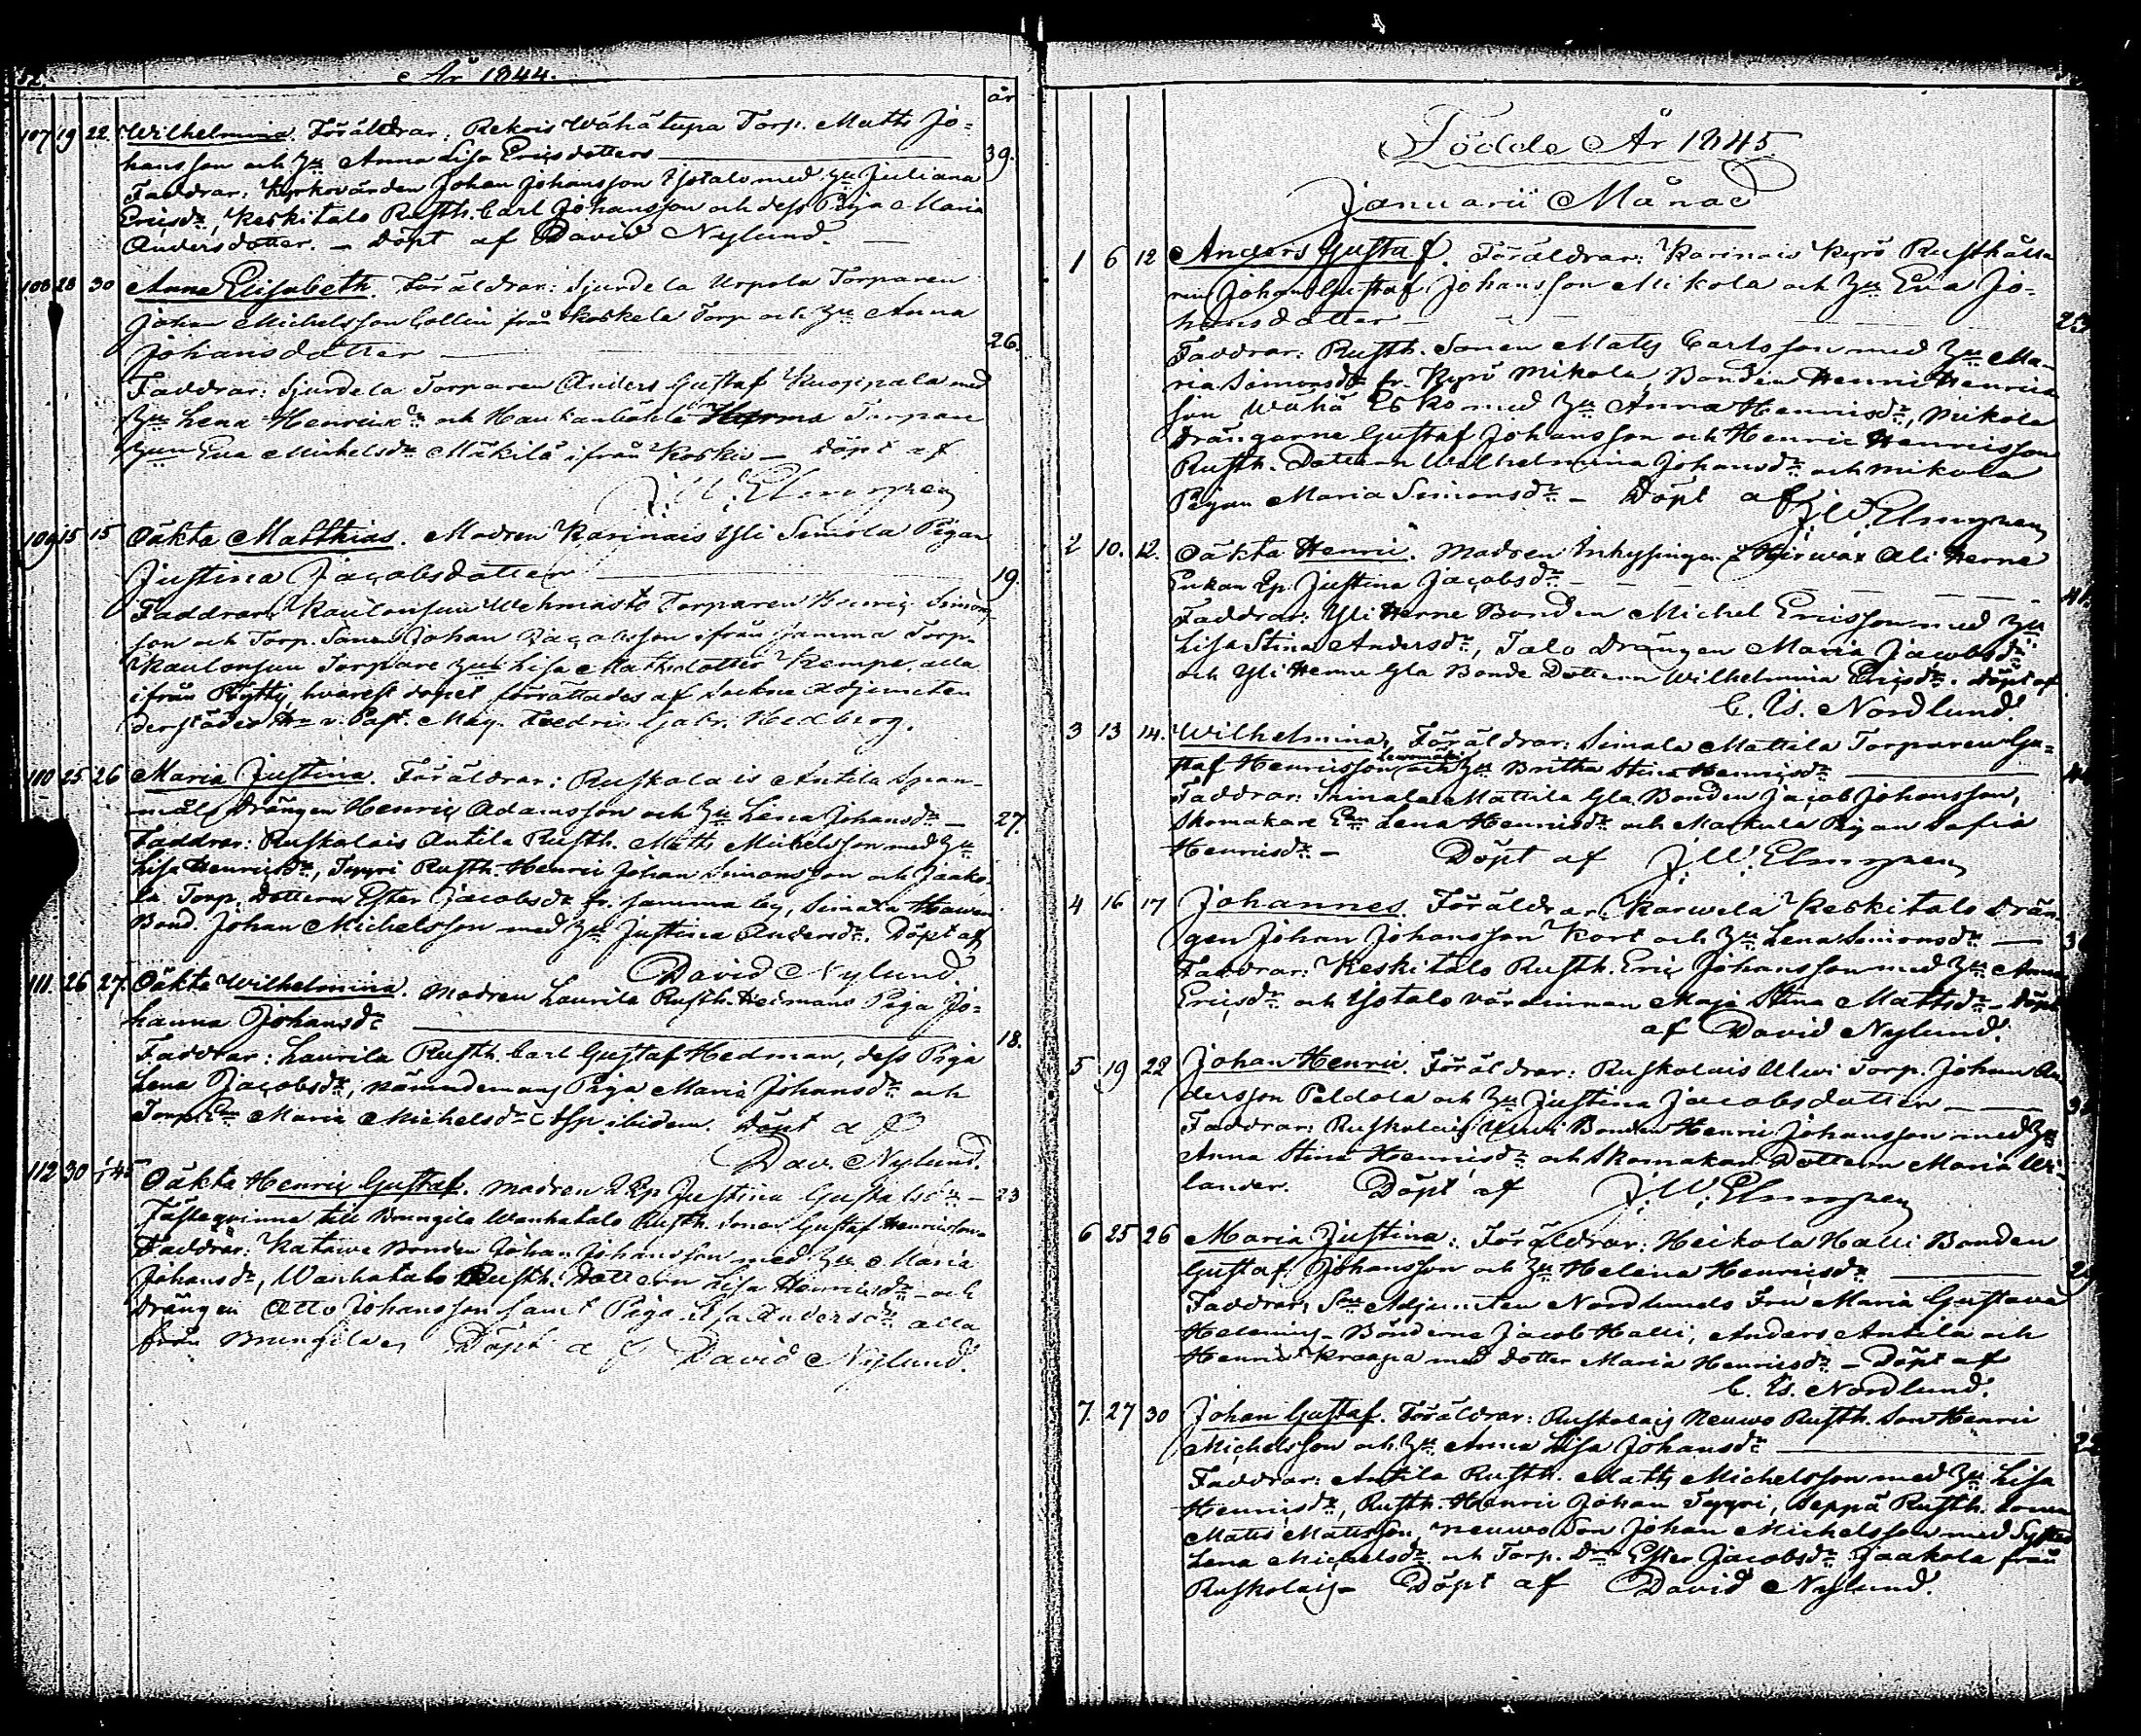 År 1844.
år
107 19 22 Wilhelmina. Föräldrar: Rekois Wähätupa Torp. Matts Jo-
hansson och Hu Anna Lisa Ericsdotter 39.
Faddrar: Kyrkovärden Johan Johansson Isotalo med Hu Juliana
Ericsdr, Keskitalo Rusth. Carl Johansson och dess Piga Maria
Andersdotter. – Döpt af David Nylund. –
108 28 30 Anna Elisabeth. Föräldrar: Sjurdela Urpola Torparen
Johan Michelsson Collin från Koskela Torp och Hu Anna
Johansdotter 26.
Faddrar: Sjurdela Torparen Anders Gustaf med
Hu Lena Henricsdr och Torpare
Hun Eva Michelsdr Mäkilä ifrån Koskis – Döpt af
J. W. Elmgren
109 15 15 Oäkta Matthias. Modren Karinais Yli Simola Pigan
Justina Jacobsdotter 19.
Faddrar: Kaulonsuu Wehmasto Torparen Henric Simons-
son och Torp. Sonen Johan Jacobsson ifrån samma Torp.
Kaulonsuu Torpare Hu Lisa Mattsdotter Kempe, alla
ifrån Pöytis, hvarest dopet förrättades af Sockne Adjuncten
derstädes v. Past. Mag. Fredric Gabr. Hedberg.
110 25 26 Maria Justina. Föräldrar: Ruskolais Antila Span-
måls Drängen Henric Adamsson och Hu Lena Johansdr – 27.
Faddrar: Ruskolais Antila Rusth. Matts Michelsson med Hu
Lisa Henricsdr, Teppri Rusth. Henric Johan Simonsson och Jaako-
la Torp. Dottern Ester Jacobsdr fr. samma by, Simala
Bond. Johan Michelsson med Hu Justina Andersdr. Döpt af
David Nylund
111. 26 27. Oäkta Wilhelmina. Modren Laurila Rusth. Hedmans Piga Jo-
hanna Johansdr 18.
Faddrar: Laurila Rusth. Carl Gustaf Hedman, dess Piga
Lena Jacobsdr, nämndemans Piga Maria Johansdr och
Torp. En Maria Michelsdr ibidem. Döpt af
Dav. Nylund.
112 30 1/1 45 Oäkta Henric Gustaf. Modren Justina Gustafsdr – 23
Fästeqvinna till Brungila Wanhatalo Rusth. Sonen Gustaf Henricsson.
Faddrar: Katawe Bonden Johan Johansson med Hu Maria
Johansdr, Wanhatalo Rusth. Dottern Lisa Henricsdr – och
Drängen Otto Johansson samt Piga Lisa Andersdr alla
från Brungila Döpt af David Nylund.
Födde År 1845
Januarii Månad
1 6 12 Anders Gustaf. Föräldrar: Karinais Kyrö Rusthålla-
ren Johan Gustaf Johansson Mikola och Hu Eva Jo-
hansdotter
Faddrar: Rusth. Sonen Matts Carlsson med Hu Ma-
ria Simonsdr fr. Kyrö Mikola, Bonden Henric Henrics-
son Wähä Esko med Hu Anna Henricsdr, Mikola
Drängarne Gustaf Johansson och Henric Henricsson
Rusth. Dottern Wilhelmina Johansdr och Mikola
Pigan Maria Simonsdr – Döpt af J. W. Elmgren
2 10. 12. Oäkta Henric. Modren Inhysinge i Ali Herne
Enkan Justina Jacobsdr –
Faddrar: Yli Herne Bonden Michel Ericsson med Hu
Lisa Stina Andersdr, Talo Drängen Maria Jacobsdr
och Yli Herne Gla Bonde Dottern Wilhelmina Ericsdr. Döpt af
C. Is. Nordlund.
3 13 14. Wilhelmina, Föräldrar: Simala Mattila Torparen Gu-
staf Henricsson och Hu Britha Stina Henricsdr
Faddrar: Simala Mattila Gla Bonden Jacob Johansson,
Skomakare En Lena Henricsdr och Markula Pigan Sofia
Henricsdr – Döpt af J. W. Elmgren
4 16 17 Johannes. Föräldrar: Karwela Keskitalo Drän-
gen Johan Johansson Kort och Hu Lena Simonsdr –
Faddrar: Keskitalo Rusth. Eric Johansson med Hu Anna
Ericsdr och Isotalo värdinnan Maja Stina Mattsdr – Döpt
af David Nylund.
5 19 22 Johan Henric. Föräldrar: Ruskolais Ulwi Torp. Johan An-
dersson Peldola och Hu Justina Jacobsdotter
Faddrar: Ruskolais Ulwi Bonden Henric Johansson med Hu
Anna Stina Henricsdr och Skomakare Dottern Maria We-
lander. Döpt af J. W. Elmgren
6 25 26 Maria Justina. Föräldrar: Heikola Halli Bonden
Gustaf Johansson och Hu Helena Henricsdr
Faddrar: Sne Adjuncten Nordlunds Fru Maria Gustava
Helenius – Bönderne Jacob Halli, Anders Antila och
Henric Kraapa med dotter Maria Henricsdr – Döpt af
C. Is. Nordlund.
7. 27 30 Johan Gustaf. Föräldrar: Ruskolais Neuwo Rusth. Son Henric
Michelsson och Hu Anna Lisa Johansdr
Faddrar: Antila Rusth. Matts Michelsson med Hu Lisa
Henricsdr, Rusth. Henric Johan Teppri, Seppä Rusth. Sonen
Matts Mattsson, Neuwo Son Johan Michelsson med Syster
Lena Michelsdr och Torp. Dr Ester Jacobsdr Jaakola från
Ruskolais – Döpt af David Nylund.